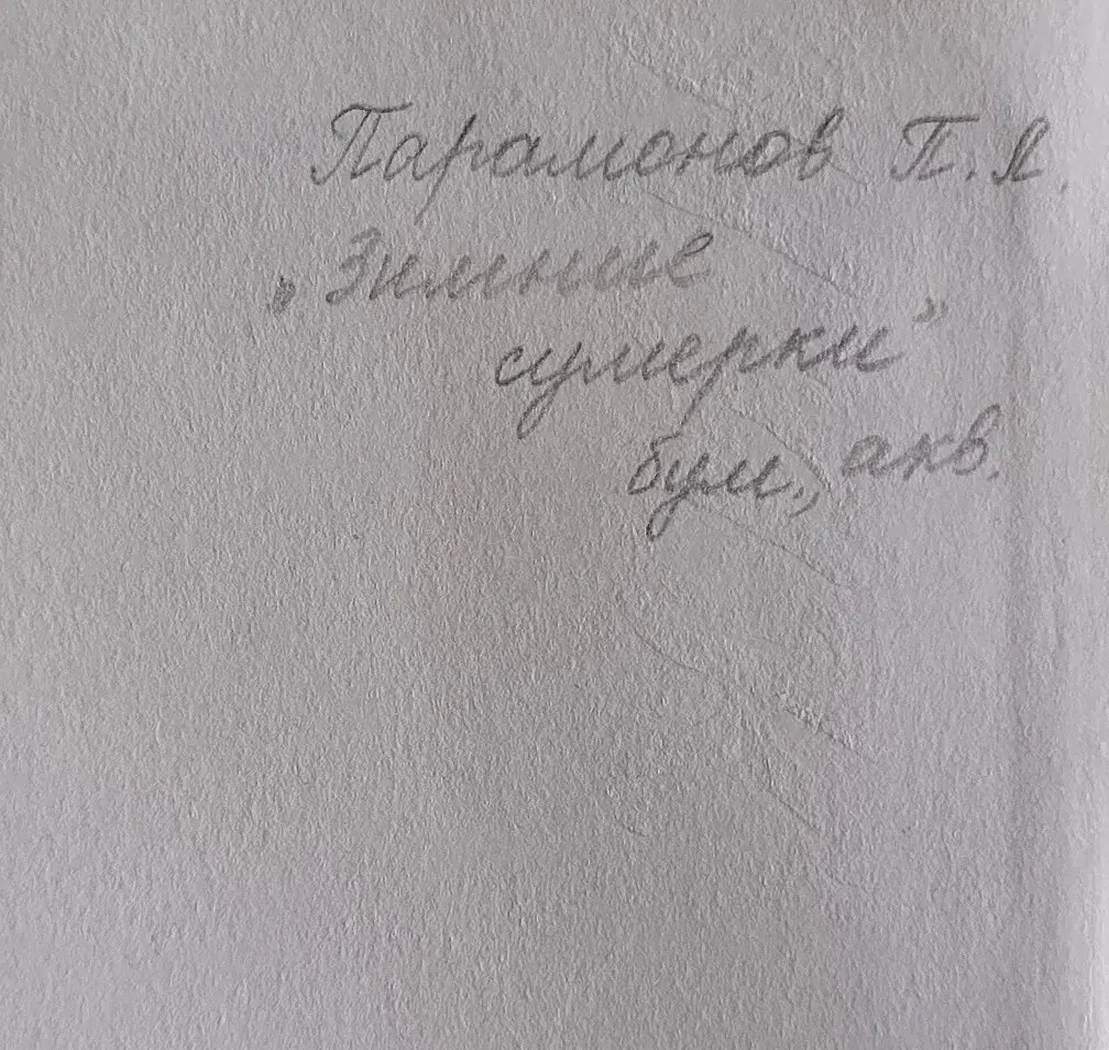 Парамонов П. Я.
„Зимние
сумерки"
бум., акв.